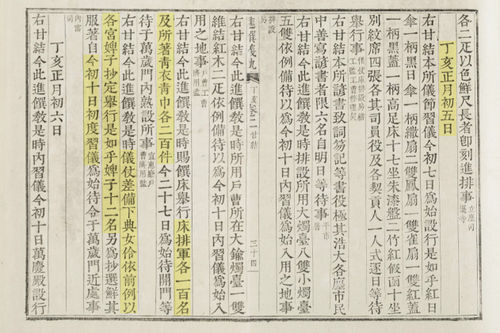 各二疋以色鮮尺長者卽刻進排事
丁亥正月初五日
右甘結本所儀節習儀今初七日爲始設行是如乎紅日
傘一柄黑日傘一柄纖扇二雙鳳扇一雙雀扇一雙紅蓋
一柄黑蓋一柄高足床十七坐朱漆盤二竹紅假面十坐
別紋席四張各其司員役及各契貢人一人式逐日等待
擧行事
右甘結本所諺書致詞笏記等書役極其浩大各廛市民
中善寫諺書者限六名自明日等待事
右甘結今此進饌敎是時排設所用大燭臺八雙小燭臺
五雙依例備待以爲今初十日內習儀爲始入用之地事
進饌儀軌 丁亥 甘結 三十四
右甘結今此進饌敎是時所用戶曹所在大鍮燭臺一雙
維結紅木二疋依例備待以爲今初十日內習儀爲始入
用之地事 戶曹 工曹
右甘結今此進饌敎是時賜饌床擧行床排軍各一百名
及所着靑衣靑巾各二百件今二十七日爲始待開門等
待于萬歲門內熟設所事
右甘結今此進饌敎是時儀仗差備下典女伶依前例以
各宮婢子抄定擧行是如乎婢子十二名另爲抄選鮮其
服着自今初十日初度習儀爲始待令于萬歲門近處事
內需司
丁亥正月初六日
右甘結今此進饌敎是時內習儀今初十日萬慶殿設行